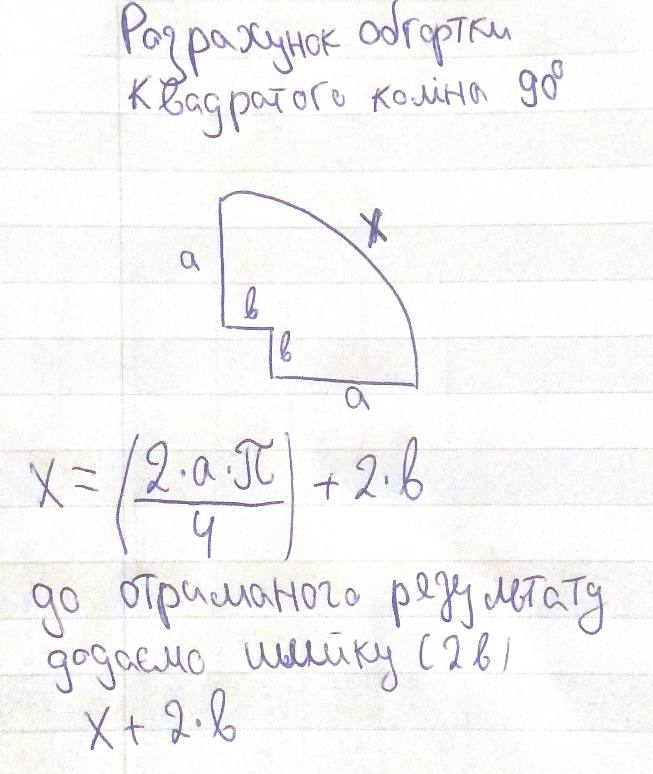 Разрахунок обгортки
квадратого коліна 90°
x
a
в
в
a
x = (2·a·π/4) + 2·в
до отриманого результату
додаємо шийку (2в)
x + 2·в